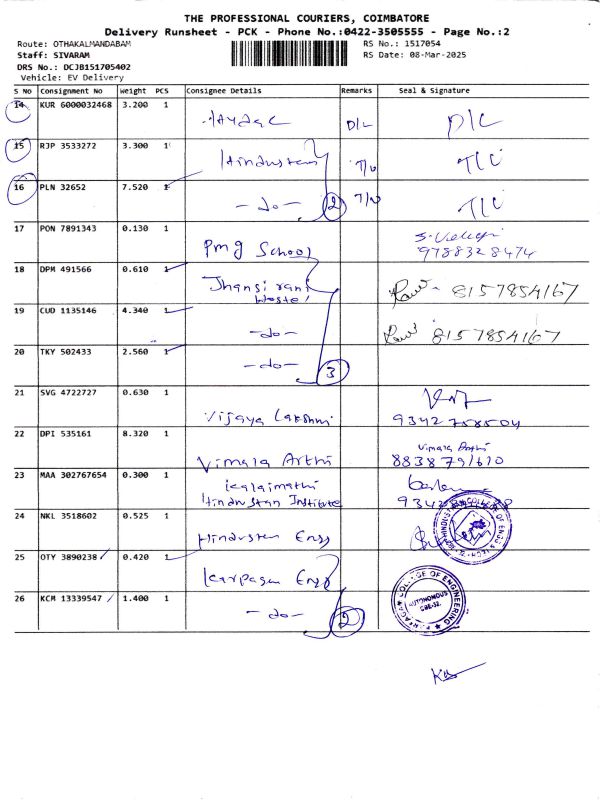 THE PROFESSIONAL COURIERS, COIMBATORE
Delivery Runsheet - PCK - Phone No.:0422-3505555 - Page No.:2
Route: OTHAKALMANDABAM
RS No.: 1517054
Staff: SIVARAM
RS Date: 08-Mar-2025
DRS No.: DCJB151705402
Vehicle: EV Delivery
S NO Consignment No Weight PCS Consignee Details Remarks Seal & Signature
14 KUR 6000032468 3.200 1 D/L D/L
15 RJP 3533272 3.300 1 Hindustan
16 PLN 32652 7.520 1 -do- 2
17 PON 7891343 0.130 1 Pmg School
9788328474
18 DPM 491566 0.610 1 Jhansi rani Hostel 8157854167
19 CUD 1135146 4.340 1 -do- 8157854167
20 TKY 502433 2.560 1 -do- 3
21 SVG 4722727 0.630 1 Vijaya Lakshmi 9342758504
22 DPI 535161 8.320 1 Vimala Arthi Vimala Arthi
8838791610
23 MAA 302767654 0.300 1 Kalaimathi
Hindustan Institute
24 NKL 3518602 0.525 1 Hindustan Engg
25 OTY 3890238 0.420 1 Karpagam Engg
26 KCM 13339547 1.400 1 -do- 2
COLLEGE OF ENGINEERING
AUTONOMOUS
CBE-32.